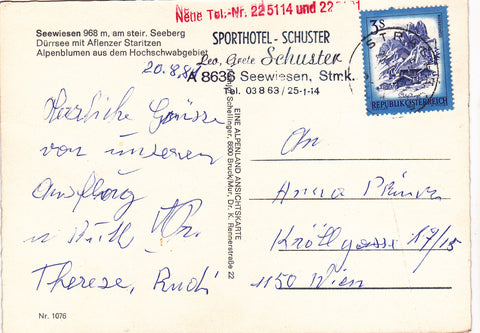 Neue Tel.-Nr. 22 5114 und 22
Seewiesen 968 m, am steir. Seeberg
Dürrsee mit Aflenzer Staritzen
Alpenblumen aus dem Hochschwabgebiet
SPORTHOTEL - SCHUSTER
Leo, Grete Schuster
A 8636 Seewiesen, Stmk.
Tel. 03863/25-1-14
3S
REPUBLIK ÖSTERREICH
20.8.
Herzliche Grüsse
von unserem
Ausflug
Therese, Rudi
EINE ALPENLAND ANSICHTSKARTE
Schellinger, 8600 Bruck/Mur, Dr. K. Rennerstraße 22
An
Anna
Kröllgasse 17/15
1150 Wien
Nr. 1076